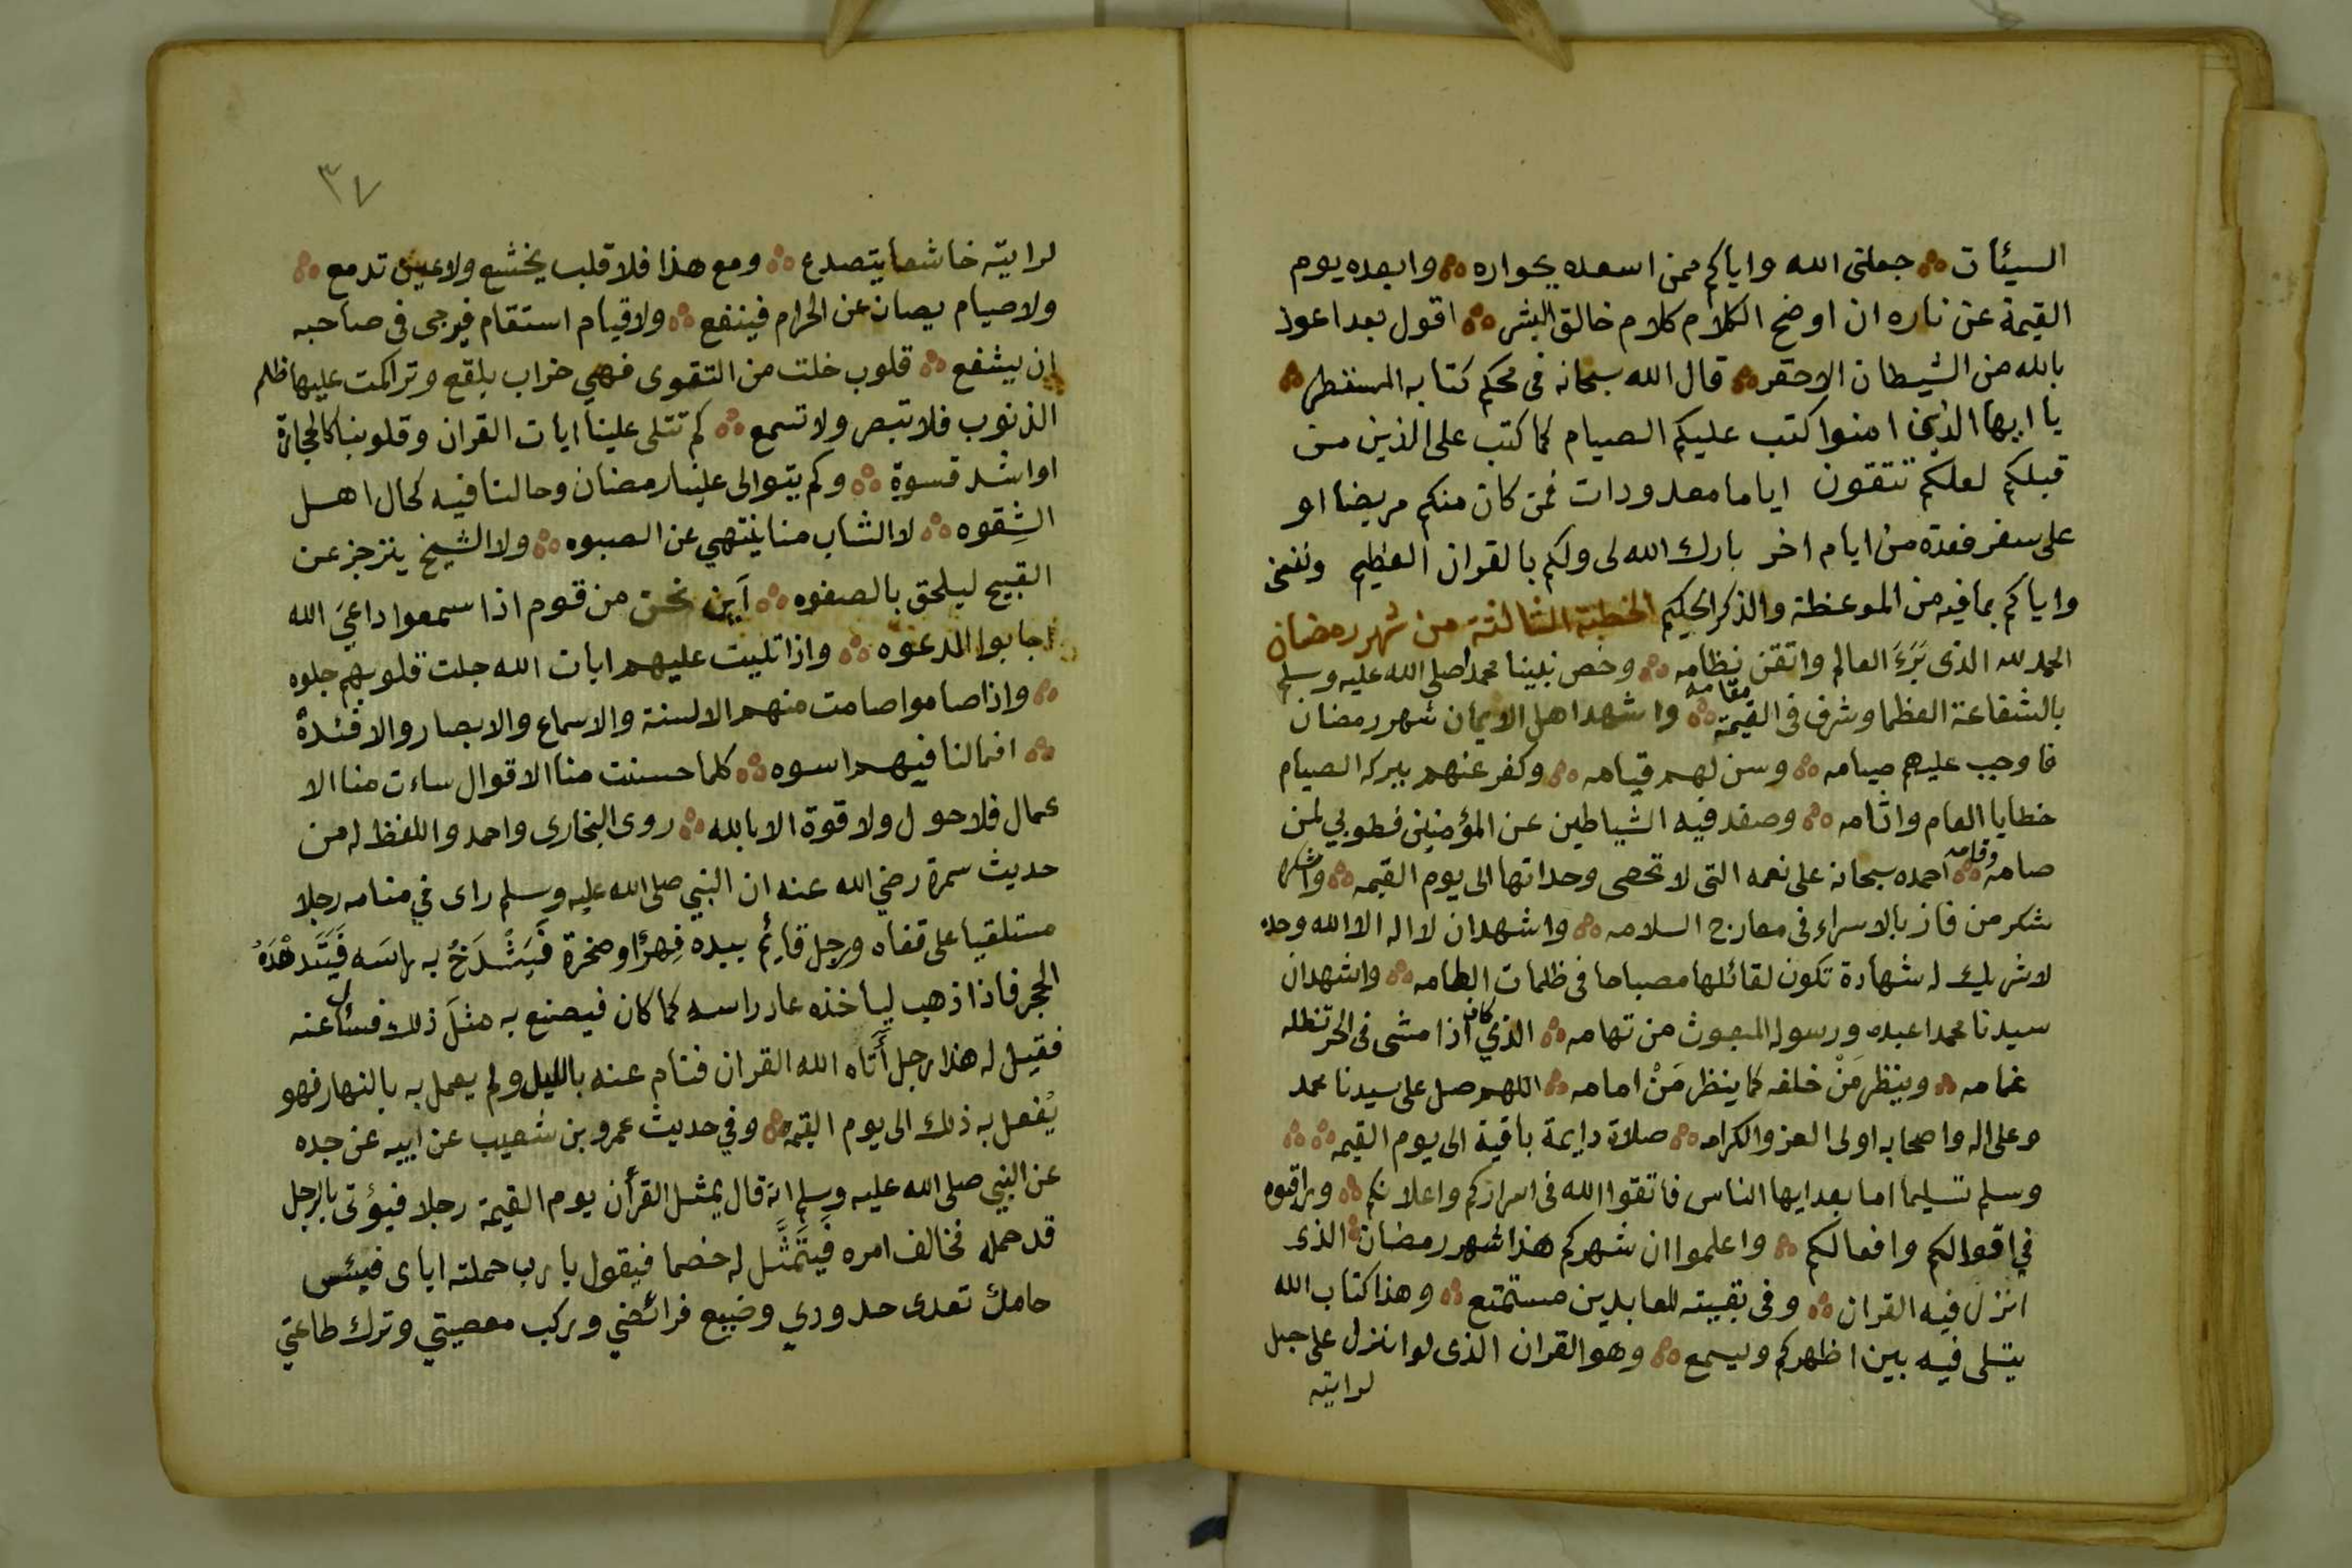 السيئات ∴ جعلنى الله واياكم ممن اسعده بجواره ∴ وابعده يوم
القيمة عن ناره ان اوضح الكلام كلام خالق البشر ∴ اقول بعد اعوذ
بالله من الشيطان الاحقر ∴ قال الله سبحانه فى محكم كتابه المستطر ∴
يا ايها الذين امنوا كتب عليكم الصيام كما كتب على الذين من
قبلكم لعلكم تتقون اياما معدودات فمن كان منكم مريضا او
على سفر فعدة من ايام اخر بارك الله لى ولكم بالقران العظيم ونفعنى
واياكم بما فيه من الموعظة والذكر الحكيم الخطبة الثالثة من شهر رمضان
الحمد لله الذى بَرَءَ العالم واتقن نظامه ∴ وخص نبينا محمدا صلى الله عليه وسلم
بالشفاعة العظما وشرف فى القيمة مقامه ∴ واشهد اهل الايمان شهر رمضان
فاوجب عليهم صيامه ∴ وسن لهم قيامه ∴ وكفر عنهم ببركه الصيام
خطايا العام واثامه ∴ وصفد فيه الشياطين عن المؤمنين فطوبي لمن
صامه وقامه ∴ احمده سبحانه على نعمه التى لا تحصى وحداتها الى يوم القيمه ∴ واشكره
شكر من فاز بالاسراء فى معارج السلامه ∴ واشهد ان لا اله الا الله وحده
لا شريك له شهادة تكون لقائلها مصباحا فى ظلمات الطامه ∴ واشهد ان
سيدنا محمدا عبده ورسوله المبعوث من تهامه ∴ الذي كان اذا مشى فى الحر تظله
غمامه ∴ وينظر مَنْ خلفه كما ينظر مَنْ امامه ∴ اللهم صل على سيدنا محمد
وعلى اله واصحابه اولى العز والكرامه ∴ صلاة دايمة باقية الى يوم القيمه ∴ ∴
وسلم تسليما اما بعد ايها الناس فاتقوا الله فى اسراركم واعلانكم ∴ وراقبوه
في اقوالكم وافعالكم ∴ واعلموا ان شهركم هذا شهر رمضان ∴ الذى
انزل فيه القران ∴ وفى بقيته للعابدين مستمتع ∴ وهذا كتاب الله
يتلى فيه بين اظهركم ويسمع ∴ وهو القران الذى لو انزل على جبل
لرايته
٣٧
لرايته خاشعا يتصدع ∴ ومع هذا فلا قلب يخشع ولا عين تدمع ∴
ولا صيام يصان عن الحرام فينفع ∴ ولا قيام استقام فيرجى فى صاحبه
ان يشفع ∴ قلوب خلت من التقوى فهي خراب بلقع وتراكمت عليها ظلم
الذنوب فلا تبصر ولا تسمع ∴ كم تتلى علينا ايات القران وقلوبنا كالحجارة
او اشد قسوة ∴ وكم يتوالى علينا رمضان وحالنا فيه كحال اهل
الشِقوه ∴ لا الشاب منا ينتهي عن الصبوه ∴ ولا الشيخ ينزجز عن
القبيح ليلحق بالصفوه ∴ اَين نحن من قوم اذا سمعوا داعيَ الله
اجابوا الدعوه ∴ واذا تليت عليهم ايات الله جلت قلوبهم جلوه
∴ واذا صاموا صامت منهم الالسنة والاسماع والابصار والافئدةُ
∴ افما لنا فيهم اسوه ∴ كلما حسنت منا الاقوال ساءت منا الا
عمال فلا حول ولا قوة الا بالله ∴ روى البخارى واحمد واللفظ له من
حديث سمرة رضي الله عنه ان النبي صلى الله عليه وسلم راى في منامه رجلا
مستلقيا على قفاه ورجل قائِم بيده فِهرٌ او صخرة فَيَشْدَخُ به راسَه فَيَتَدهْدَهُ
الحجر فاذا ذهب لياخذه عاد راسه كما كان فيصنع به مثلَ ذلك فسئال عنه
فقيل له هذا رجل أَتاه الله القران فنام عنه بالليل ولم يعمل به بالنهار فهو
يُفعل به ذلك الى يوم القيمه ∴ وفي حديث عمرو بن شعيب عن ابيه عن جده
عن النبي صلى الله عليه وسلم انه قال يمثل القرأن يوم القيمة رجلا فيؤتى بالرجل
قد حمله فخالف امره فَيَتَمَثَّل له خصما فيقول يا رب حملته اياى فبئس
حاملٌ تعدى حدودي وضيع فرائضي وركب معصيتي وترك طاعتي